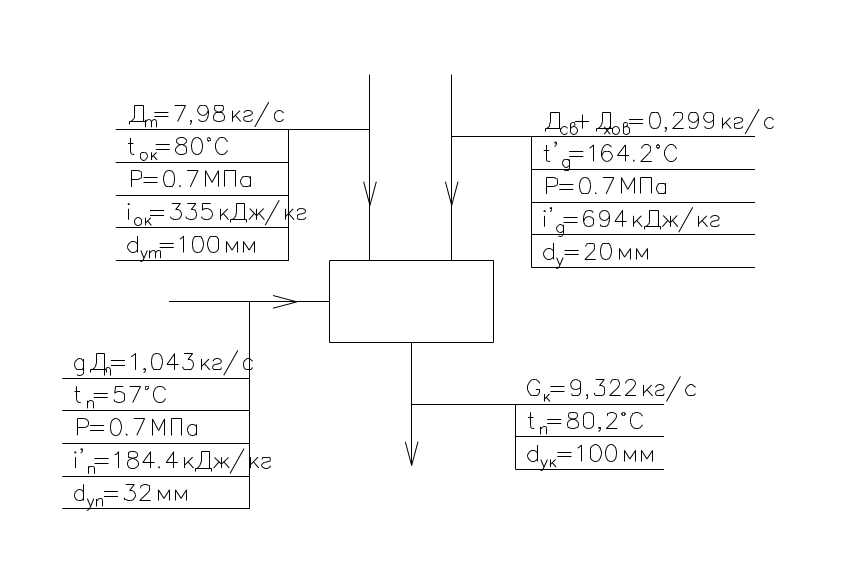 Дт=7,98 кг/с
tок=80°С
Р=0.7 МПа
iок=335 кДж/кг
dут=100 мм
Дсв+Дхов=0,299 кг/с
t'д=164.2°С
Р=0.7 МПа
i'д=694 кДж/кг
dу=20 мм
gДп=1,043 кг/с
tп=57°С
Р=0.7 МПа
i'п=184.4 кДж/кг
dуп=32 мм
Gк=9,322 кг/с
tп=80,2°С
dук=100 мм